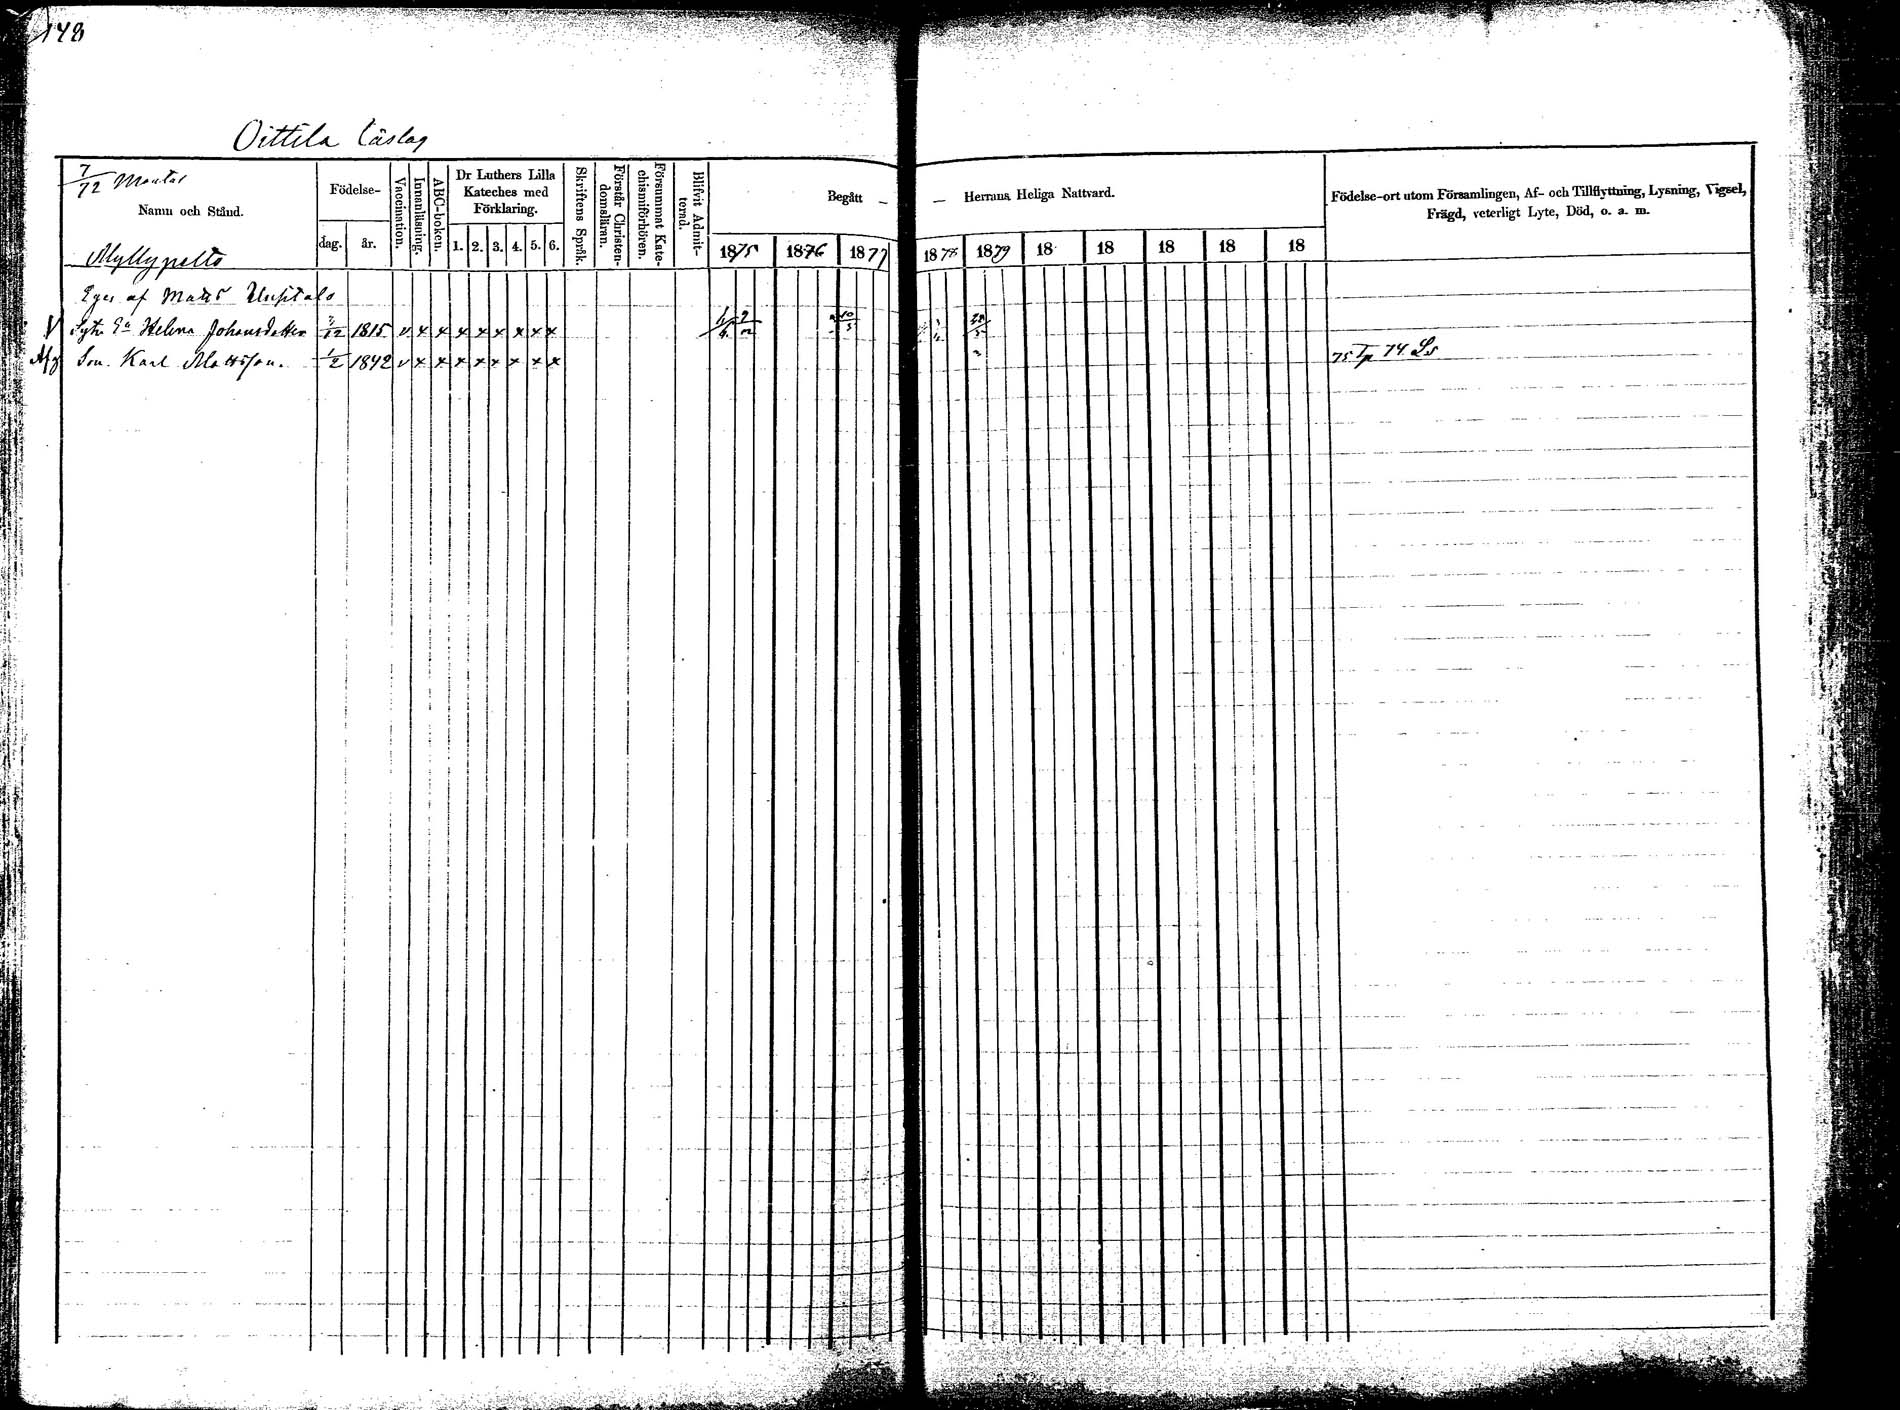 148
Oittila Läslag
7/72 Mantal
Namn och Stånd.
Födelse-
dag. år.
Vaccination.
Innanläsning.
ABC-boken.
Dr Luthers Lilla Kateches med Förklaring.
1. 2. 3. 4. 5. 6.
Skriftens Språk.
Förstår Christendomsläran.
Försummat Katechismiförhören.
Blifvit Admitterad.
Begått — — Herrans Heliga Nattvard.
1875 1876 1877 1878 1879 18 18 18 18 18
Födelse-ort utom Församlingen, Af- och Tillflyttning, Lysning, Vigsel,
Frägd, veterligt Lyte, Död, o. a. m.
Myllypelto
Eges af Matts Uusitalo
V Helena Johansdotter /12 1815 v x x x x x x x x 10/5
Afg Son. Karl Mattsson. 1/2 1842 v x x x x x x x x 75 74